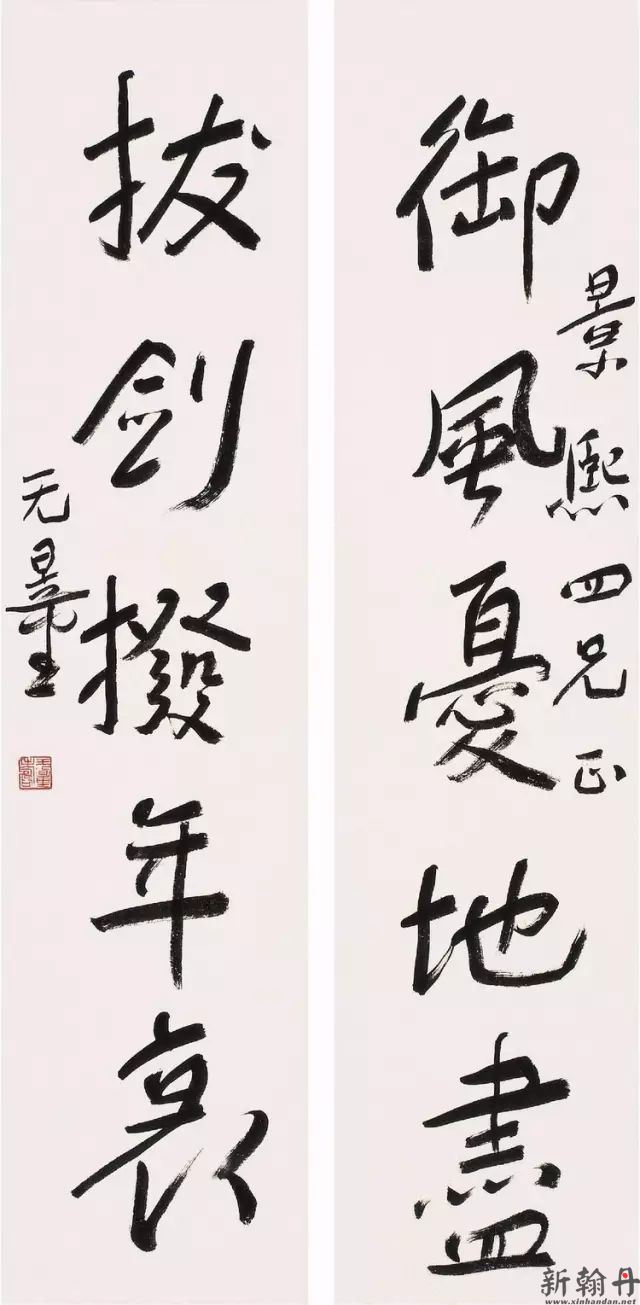 景熙四兄正
御風憂地盡
拔剑撥年衰
无量
新翰丹
www.xinhandan.net